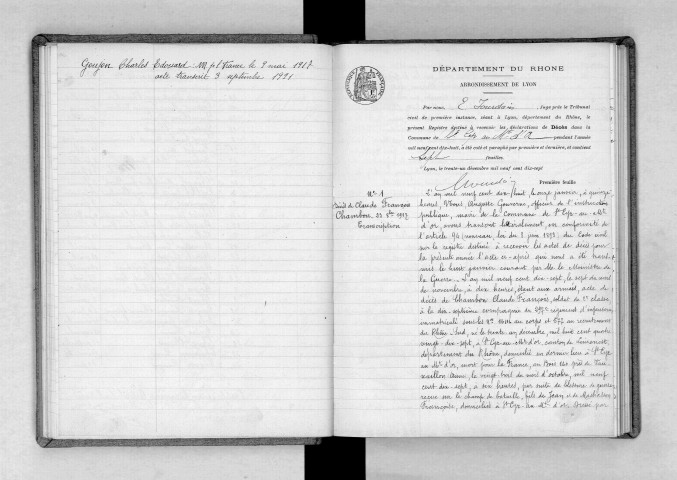 Goujon Charles Edouard M. p. l. France le 9 mai 1917
acte transcrit 3 septembre 1921
DÉPARTEMENT DU RHONE
ARRONDISSEMENT DE LYON
Par nous, Juge près le Tribunal
civil de première instance, séant à Lyon, département du Rhône, le
présent Registre destiné à recevoir les déclarations de Décès dans la
Commune de St Cyr au Mt d'Or pendant l'année
mil neuf cent dix-huit, a été coté et paraphé par première et dernière, et contient
sept feuilles.
Lyon, le trente-un décembre mil neuf cent dix-sept
Première feuille
No 1
Décès de Claude François
Chambon
Transcription
L'an mil neuf cent dix-huit, le onze janvier, à quinze
heures, Nous, Auguste Gouverne, officier de l'instruction
publique, maire de la Commune de St Cyr-au-Mt
d'or, avons transcrit littéralement, en conformité de
l'article 94 (nouveau, loi du 8 juin 1893) du Code civil
sur le registre destiné à recevoir les actes de décès pour
la présente année l'acte ci-après qui nous a été trans-
mis le huit janvier courant par Mr le Ministre de
la Guerre. L'an mil neuf cent dix-sept, le sept du mois
de novembre, à dix heures, étant aux armées, acte de
décès de Chambon Claude François, soldat de 2e classe
à la dix-septième compagnie du régiment d'infanterie
immatriculé sous les No au corps et 677 au recrutement
du Rhône-Sud, né le trente un décembre, mil huit cent quatre
vingt-dix-sept, à St Cyr-au-Mt d'or, canton de Limonest,
département du Rhône, domicilié en dernier lieu à St Cyr
au Mt d'or, mort pour la France, au Bois près de Vau-
xaillon Aisne, le vingt-huit du mois d'octobre, mil neuf
cent dix-sept, à six heures, par suite de blessures de guerre
reçues sur le champ de bataille, fils de Jean et de
Françoise, domiciliés à St Cyr au Mt d'or. Dressé par